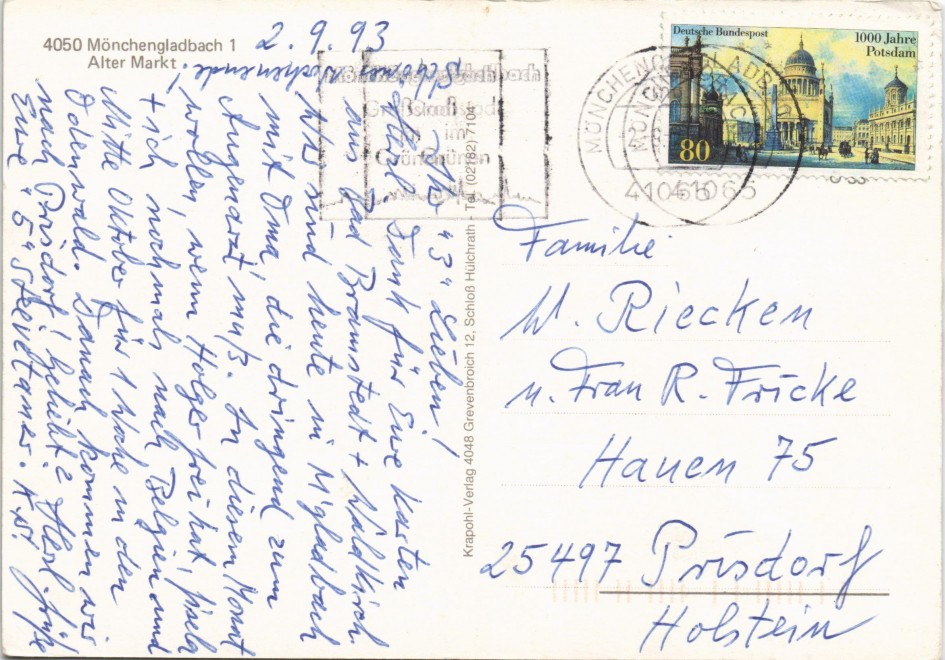 4050 Mönchengladbach 1
Alter Markt
2.9.93
Ihr "3" Lieben!
Dank für Eure Karten
aus Bad Bramstedt + Waldkirch.
Wir sind heute in M'gladbach
mit Oma die dringend zum
Augenarzt muß. In diesem Monat
wollen wenn Holger frei hat, Gisela
+ ich nochmals nach Belgien und
Mitte Oktober für 1 Woche in den
Odenwald. Danach kommen wir
nach Prisdorf!
Herzl. Grüße
Eure "5"
Schönes Wochenende!
Krapohl-Verlag 4048 Grevenbroich 12, Schloß Hülchrath - Tel. (02182) 7104
Deutsche Bundespost
1000 Jahre
Potsdam
80
Familie
W. Riecken
u. Frau R. Fricke
Hauen 75
25497 Prisdorf
Holstein